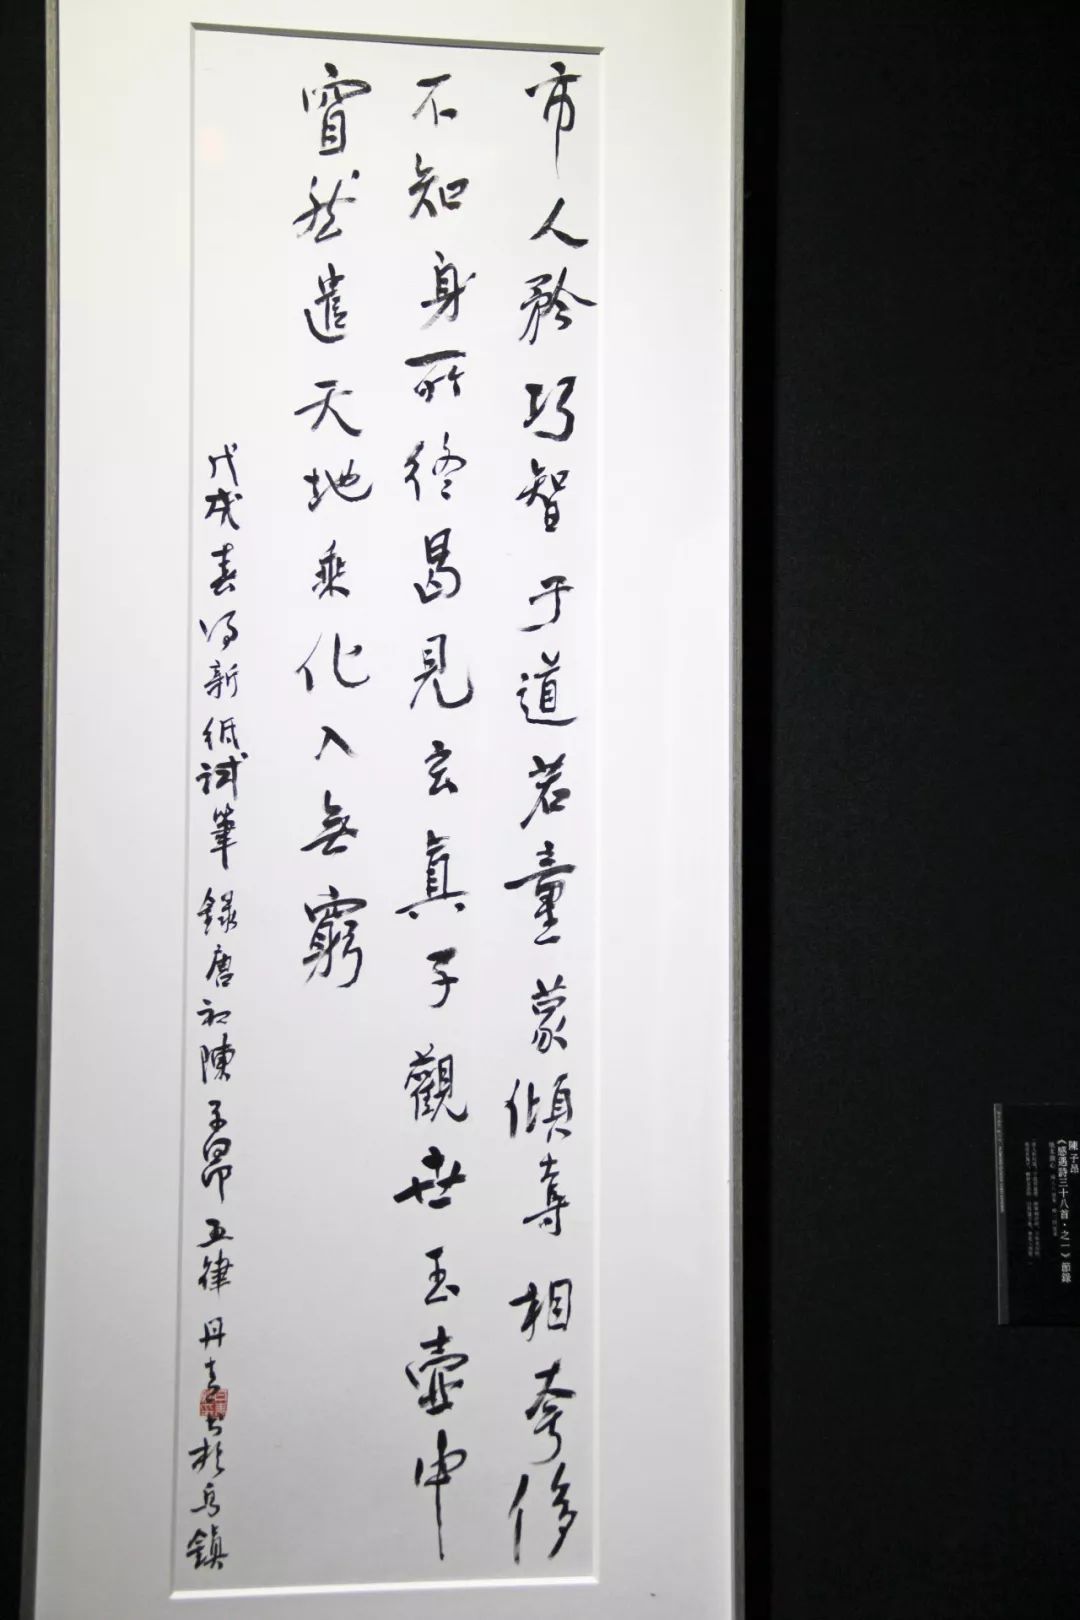 市人矜巧智于道若童蒙傾奪相夸侈
不知身所終曷見玄真子觀世玉壺中
窅然遺天地乘化入無窮
戊戌春得新紙試筆錄唐初陳子昂五律丹青書於烏鎮
陳子昂
《感遇詩三十八首·之一》節錄